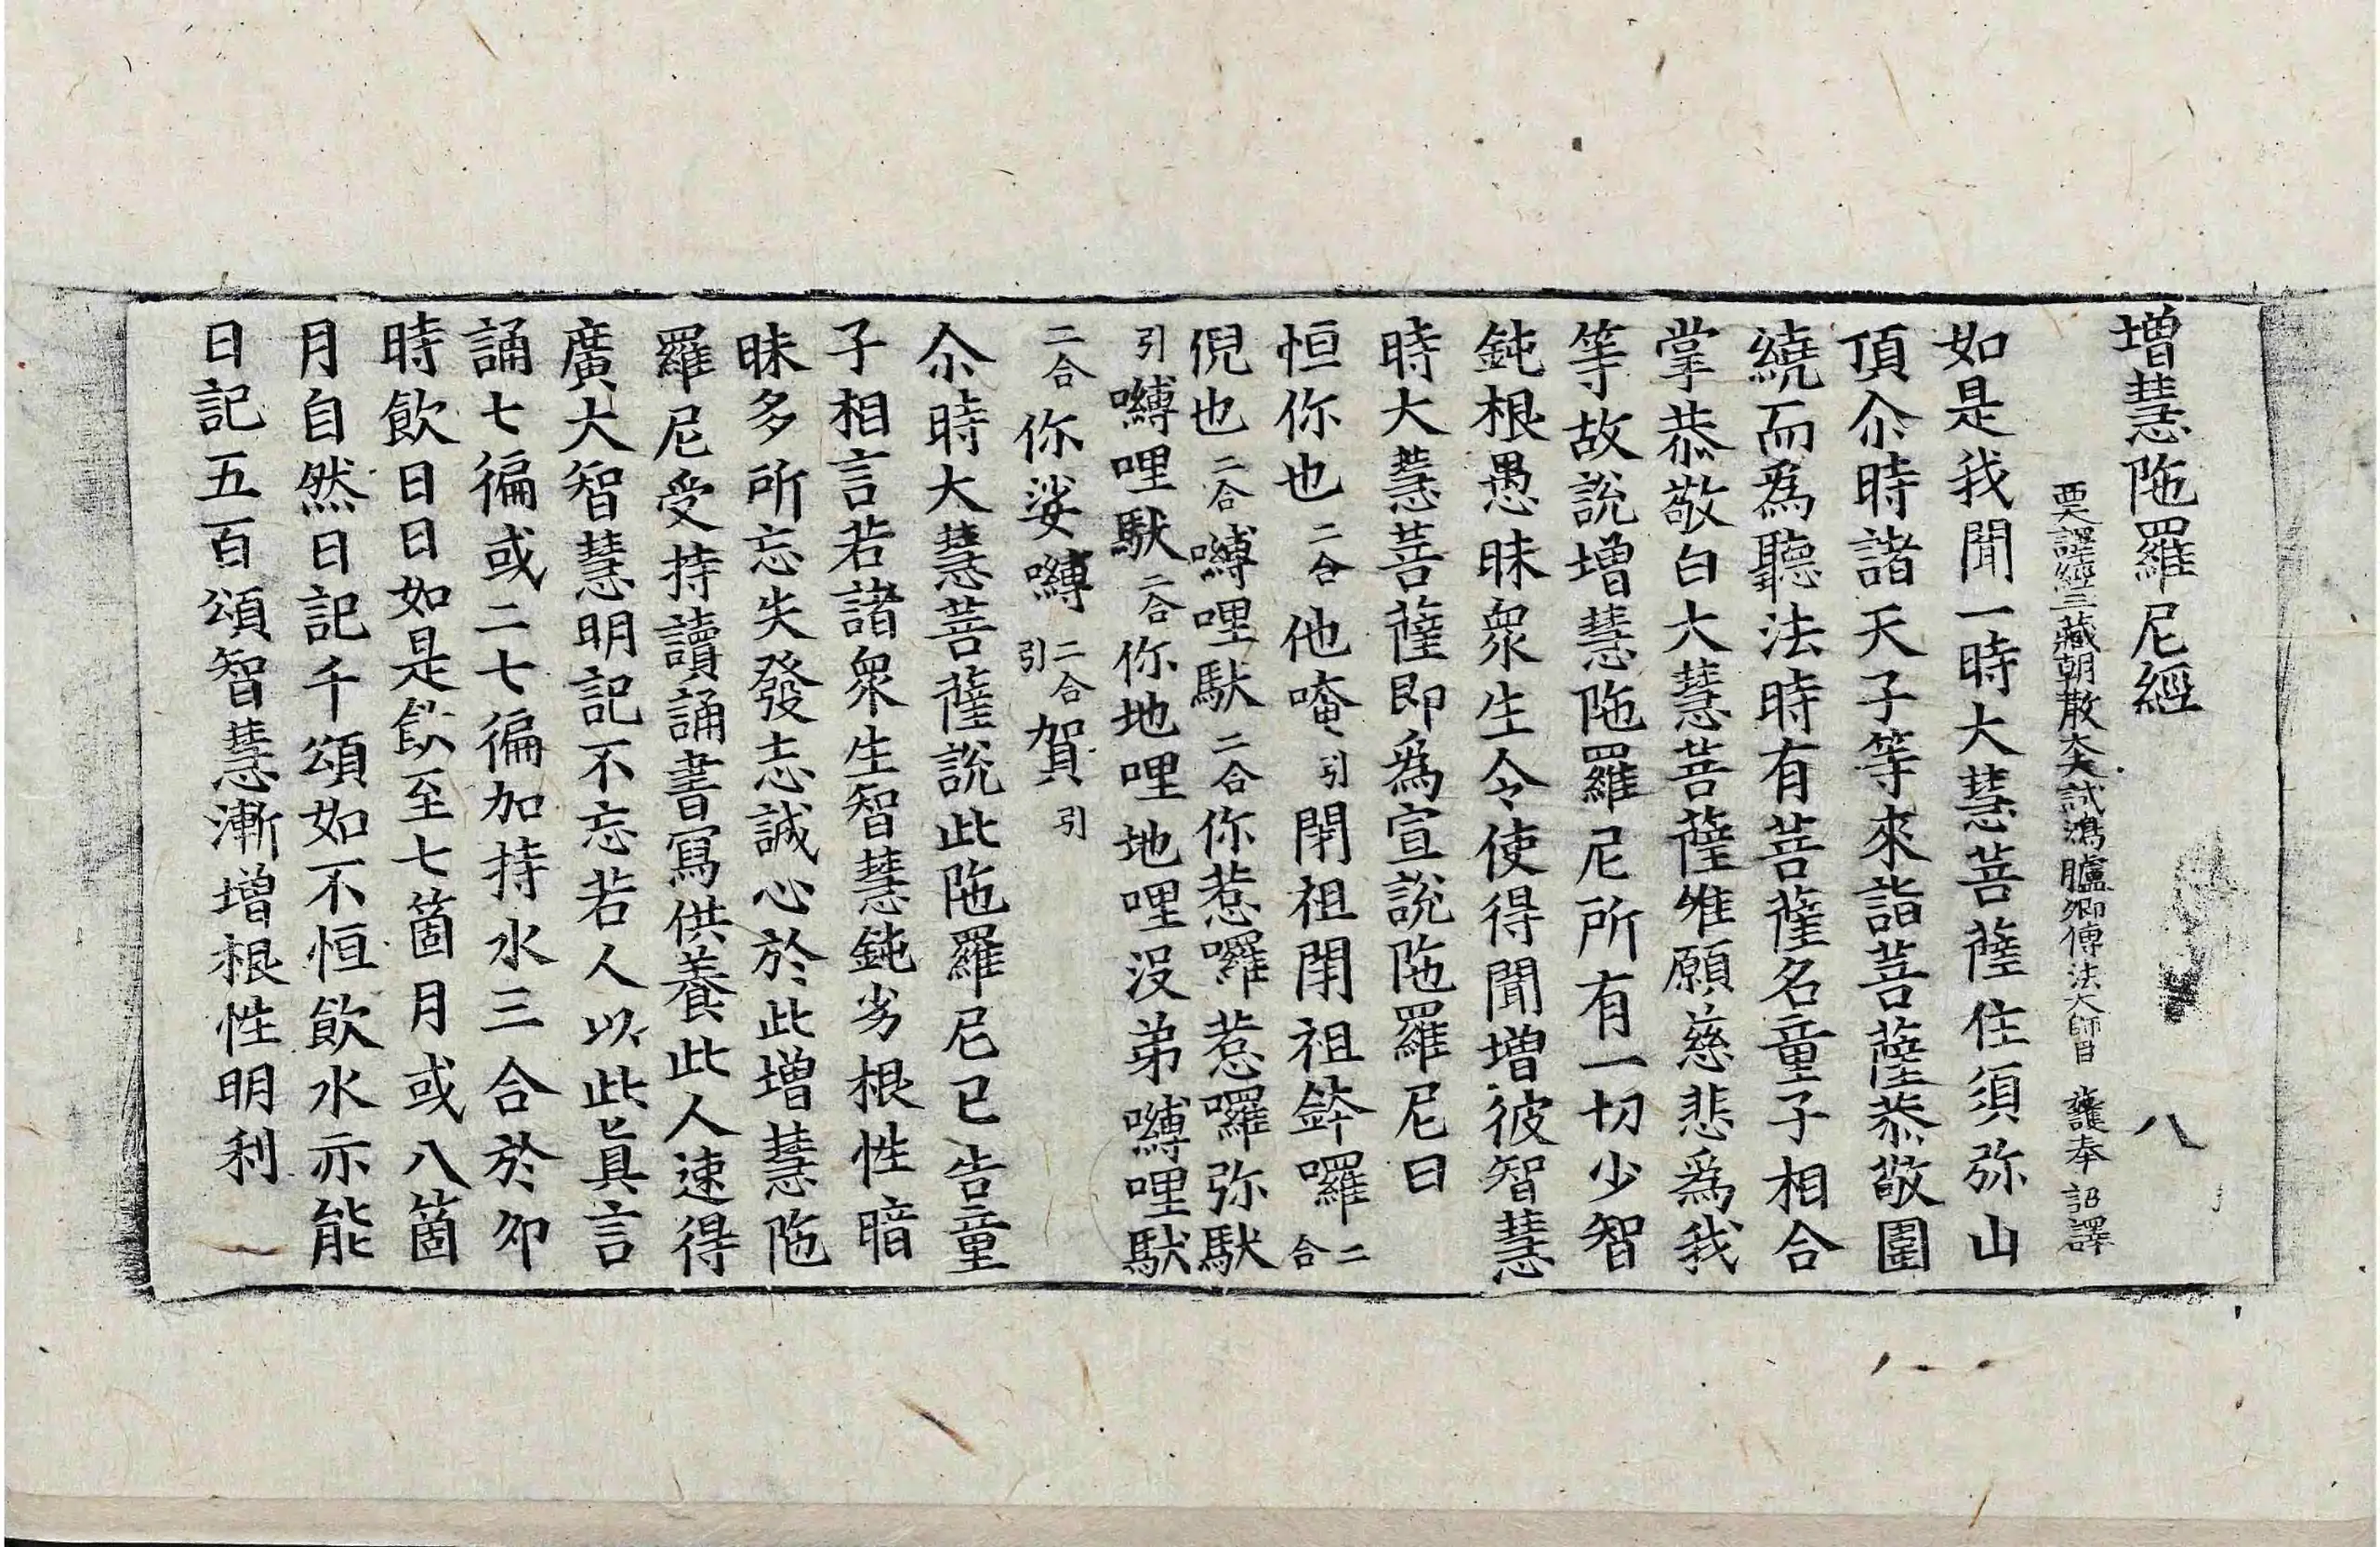 增慧陁羅尼經 八
西天譯經三藏朝散大夫試鴻臚卿傳法大師臣 施護奉 詔譯
如是我聞一時大慧菩薩住須弥山
頂尒時諸天子等來詣菩薩恭敬圍
繞而爲聽法時有菩薩名童子相合
掌恭敬白大慧菩薩唯願慈悲爲我
等故說增慧陁羅尼所有一切少智
鈍根愚昧衆生令使得聞增彼智慧
時大慧菩薩即爲宣說陁羅尼曰
怛你也二合他唵引閉祖閉祖鉢囉二合
倪也二合嚩哩馱二合你惹囉惹囉弥馱
引嚩哩馱二合你地哩地哩沒弟嚩哩馱
二合你娑嚩二合引賀引
尒時大慧菩薩說此陁羅尼已告童
子相言若諸衆生智慧鈍劣根性暗
昧多所忘失發志誠心於此增慧陁
羅尼受持讀誦書寫供養此人速得
廣大智慧明記不忘若人以此眞言
誦七徧或二七徧加持水三合於卯
時飲日日如是飲至七箇月或八箇
月自然日記千頌如不恒飲水亦能
日記五百頌智慧漸增根性明利